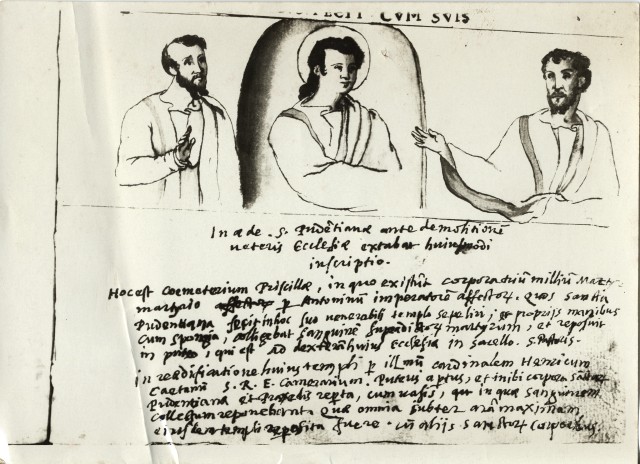 FECIT CVM SVIS
In æde S. Pudẽtianæ ante demolitionẽ
veteris Ecclesiæ extabat huiusmodi
inscriptio.
Hoc est Coemeterium Priscillæ, in quo existũt corpora triũ milliũ Martyr.
martyrio p Antoninũ imperatorẽ affector. Quos sancta
Pudentiana fecit in hoc suo venerabili templo sepeliri, et proprijs manibus
cum spongia, colligebat sanguinẽ martyrum, et reposuit
in puteo, qui est ad dexterã huius Ecclesiæ in sacello S. Pastoris.
In reædificatione huius templi p illmũ Cardinalem Henricum
Caetanũ S. R. E. Camerarium. Puteus aptus, et inibi corpora Sãctar
Pudentianæ et Praxedis repta, cum vasis, in quæ sanguinem
collectum reponebant. Quæ omnia subter arã maximam
eiusdem templi reposita fuere. cũ alijs Sanctor corporibus.